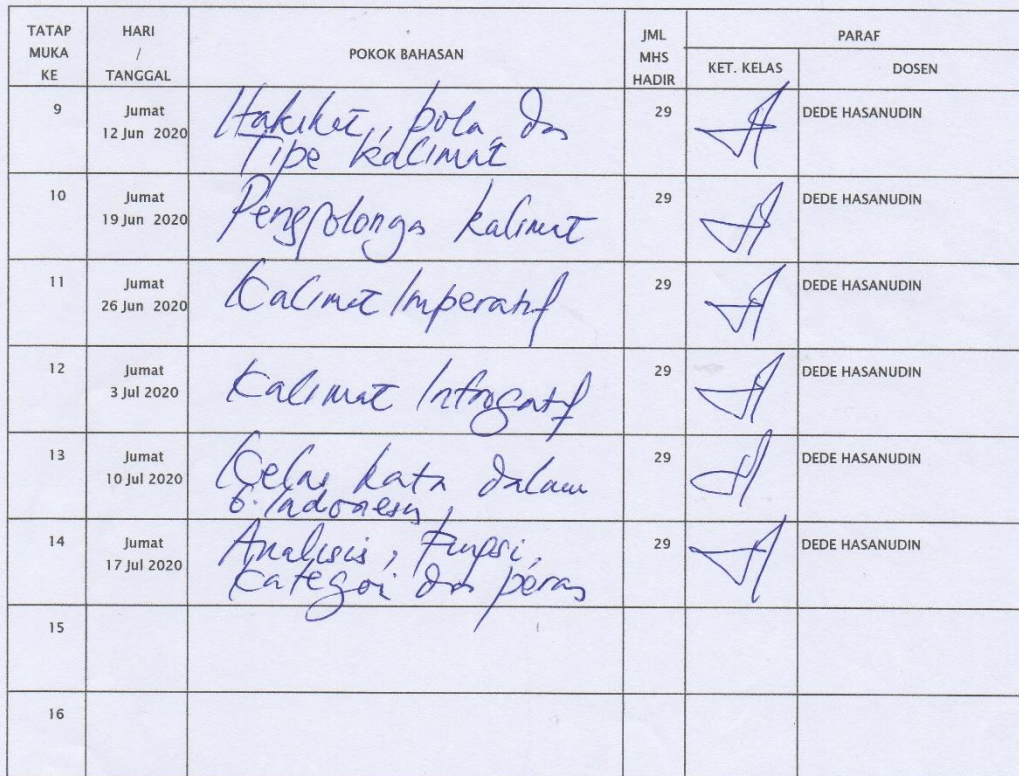 TATAP MUKA KE
HARI / TANGGAL
POKOK BAHASAN
JML MHS HADIR
PARAF
KET. KELAS
DOSEN
9
Jumat
12 Jun 2020
Hakikat, pola, dan
Tipe kalimat
29
DEDE HASANUDIN
10
Jumat
19 Jun 2020
Penggolongan kalimat
29
DEDE HASANUDIN
11
Jumat
26 Jun 2020
Kalimat Imperatif
29
DEDE HASANUDIN
12
Jumat
3 Jul 2020
Kalimat Introgatif
29
DEDE HASANUDIN
13
Jumat
10 Jul 2020
Kelas kata dalam
B. Indonesia
29
DEDE HASANUDIN
14
Jumat
17 Jul 2020
Analisis, Fungsi,
Kategori dan peran
29
DEDE HASANUDIN
15
16